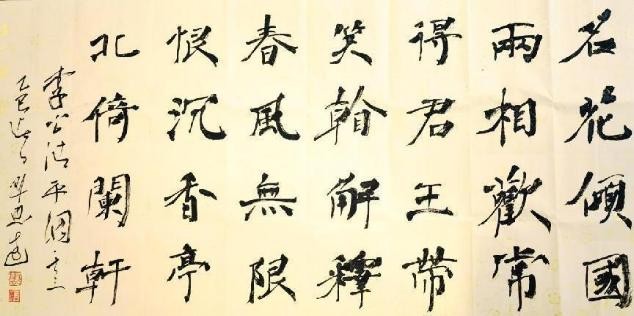 名花傾國
兩相歡常
得君王帶
笑翰解釋
春風無限
恨沉香亭
北倚闌軒
李公清平調之三